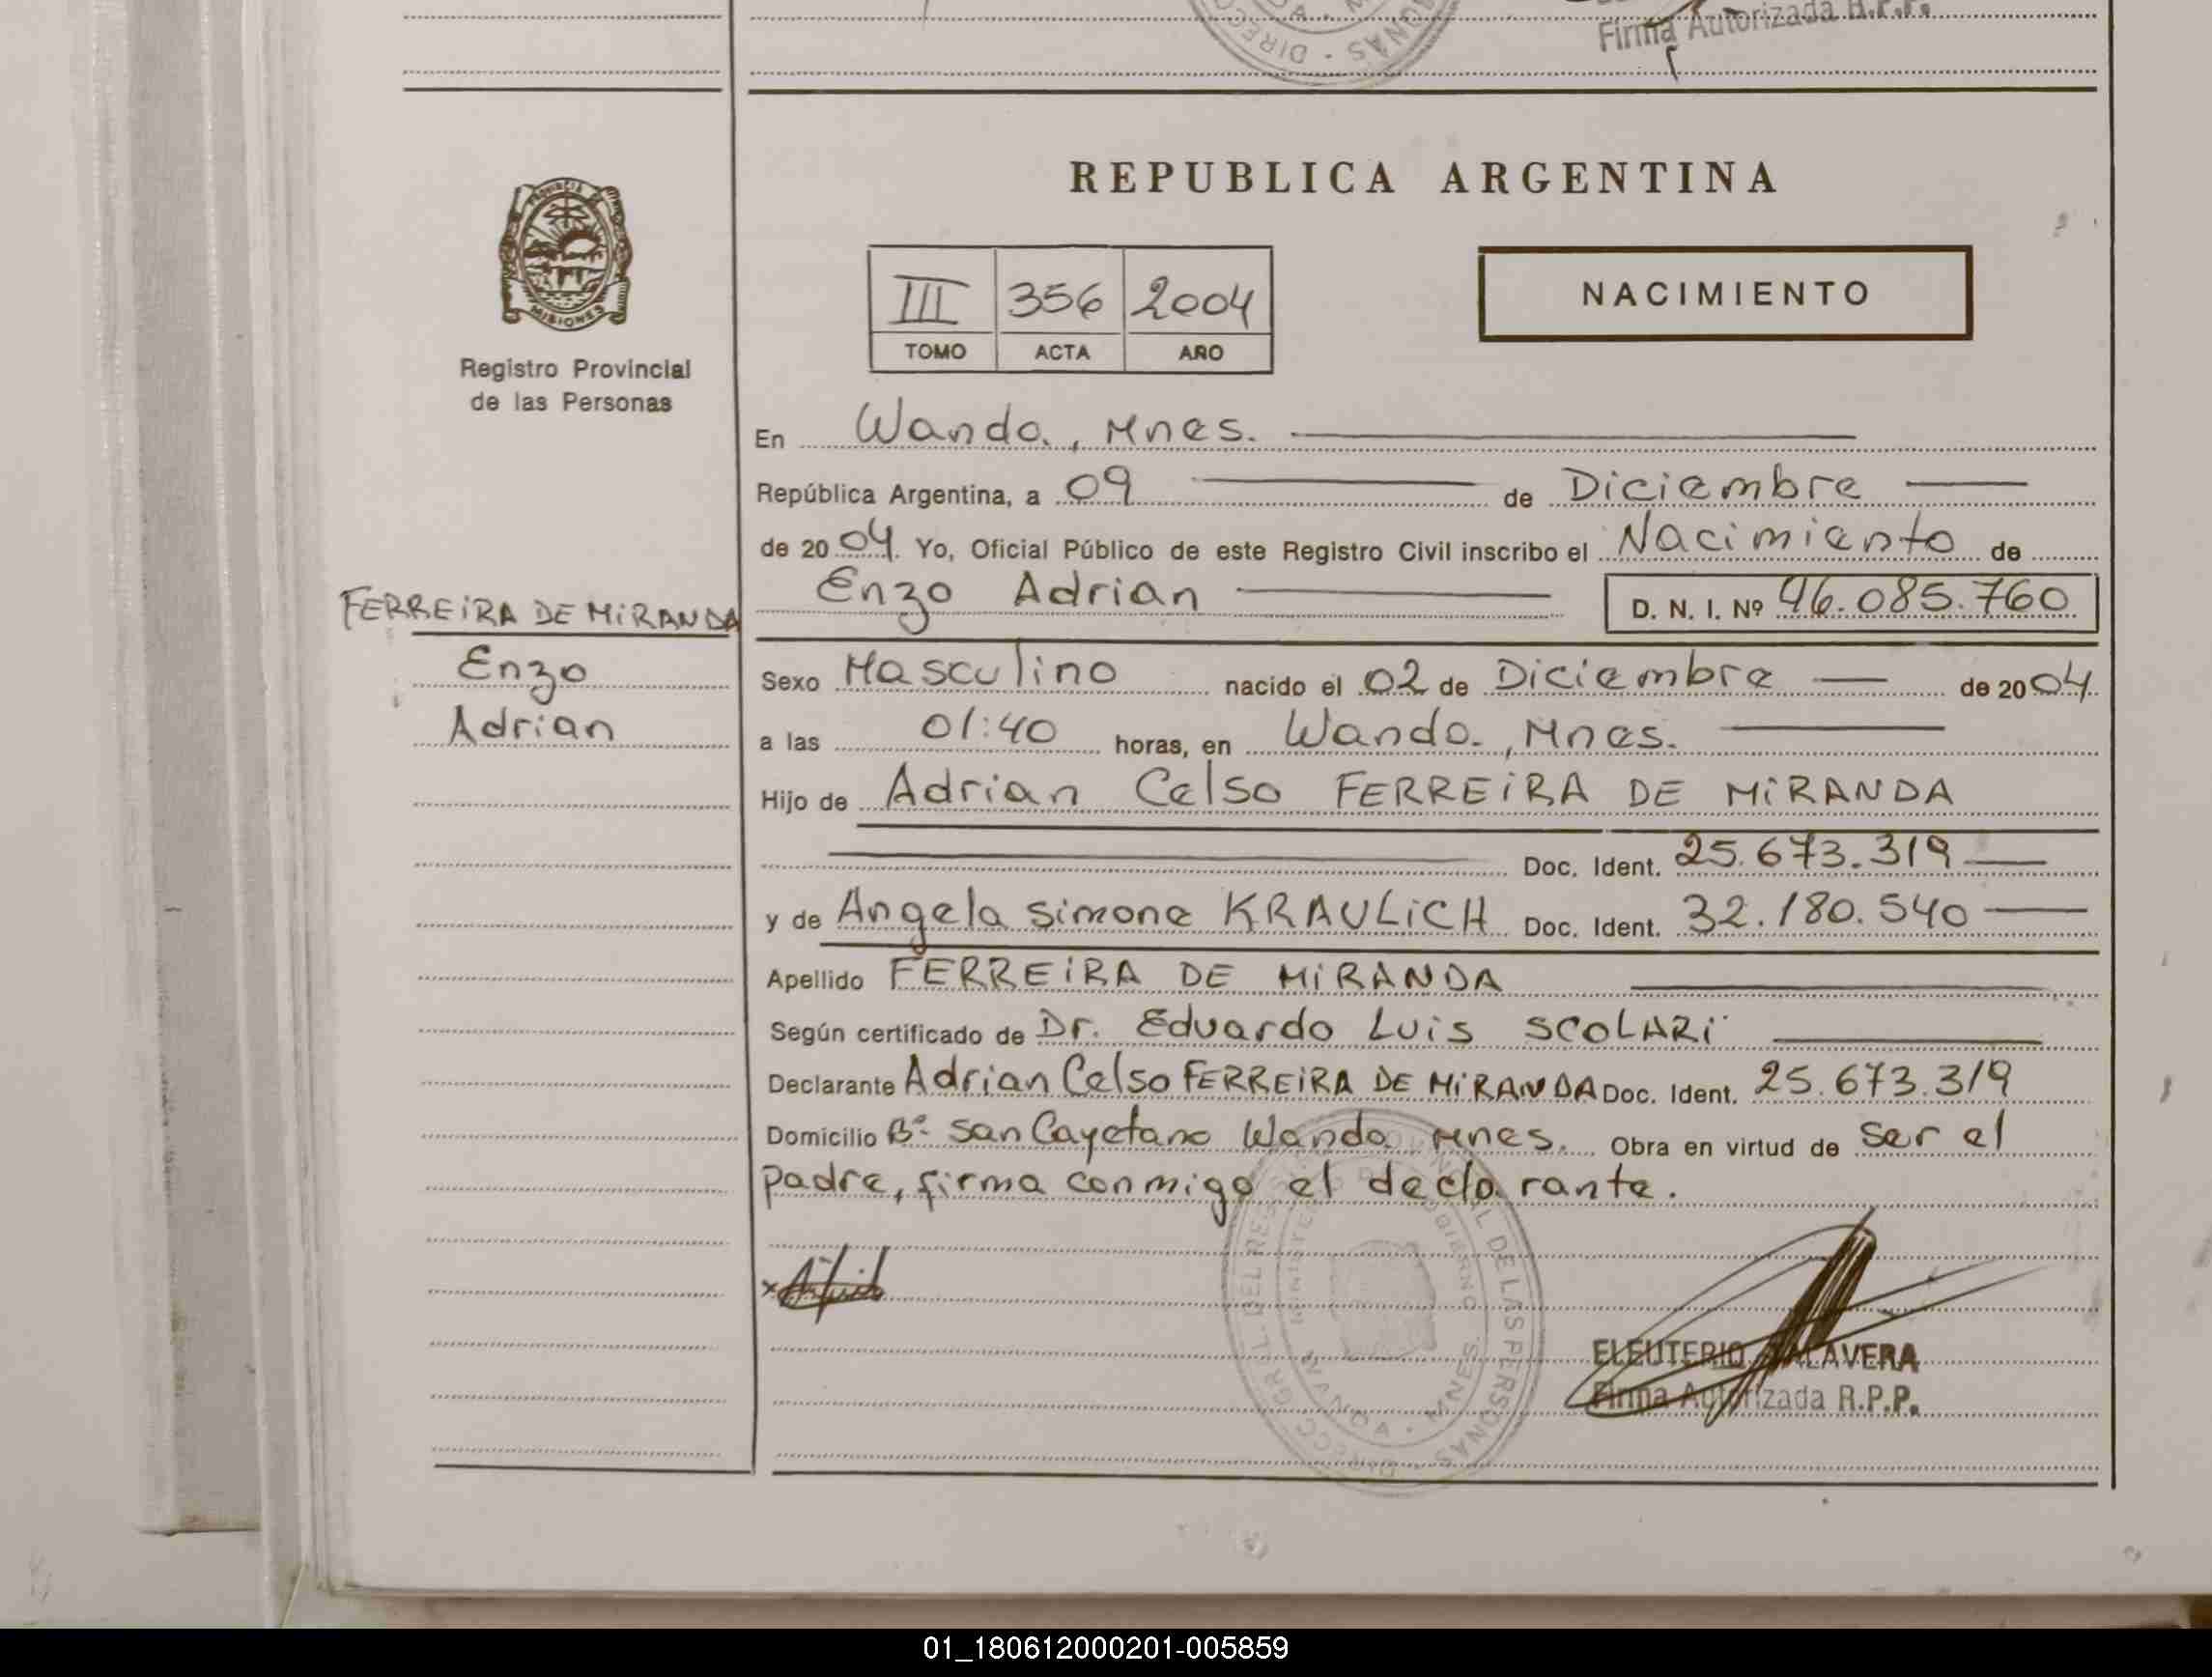 Firma Autorizada R.P.P.
PROVINCIA
MISIONES
Registro Provincial
de las Personas
REPUBLICA ARGENTINA
III 356 2004
TOMO ACTA AÑO
NACIMIENTO
En Wanda, Mnes.
República Argentina, a 09 de Diciembre
de 2004. Yo, Oficial Público de este Registro Civil inscribo el Nacimiento de
Enzo Adrian D. N. I. Nº 46.085.760
FERREIRA DE MIRANDA
Enzo
Adrian
Sexo Masculino nacido el 02 de Diciembre de 2004
a las 01:40 horas, en Wanda, Mnes.
Hijo de Adrian Celso FERREIRA DE MIRANDA
Doc. Ident. 25.673.319
y de Angela Simone KRAULICH Doc. Ident. 32.180.540
Apellido FERREIRA DE MIRANDA
Según certificado de Dr. Eduardo Luis SCOLARI
Declarante Adrian Celso FERREIRA DE MIRANDA Doc. Ident. 25.673.319
Domicilio Bº San Cayetano Wanda Mnes. Obra en virtud de ser el
padre, firma conmigo el declarante.
WANDA · MNES.
ELEUTERIO TALAVERA
Firma Autorizada R.P.P.
01_180612000201-005859